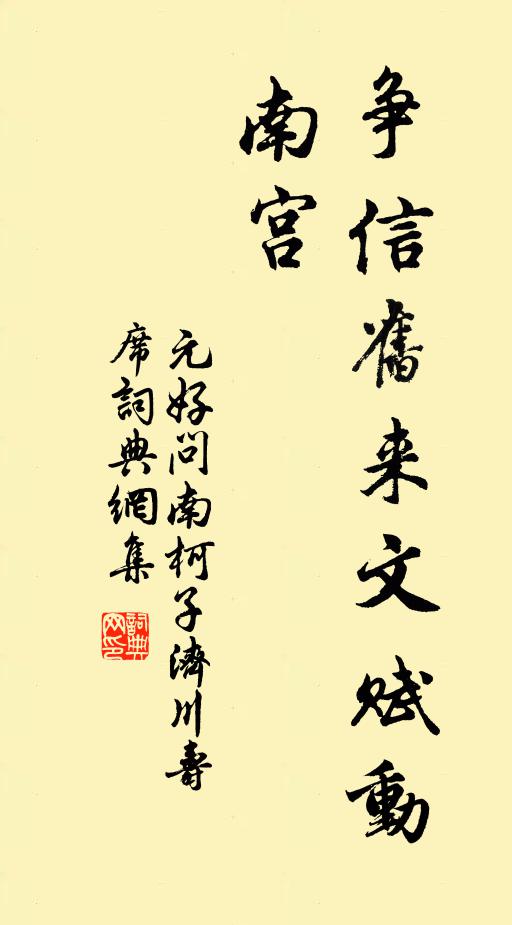 争信舊来文賦動
南宫
元好问南柯子濟川壽
席詞典網集
詞典
网印